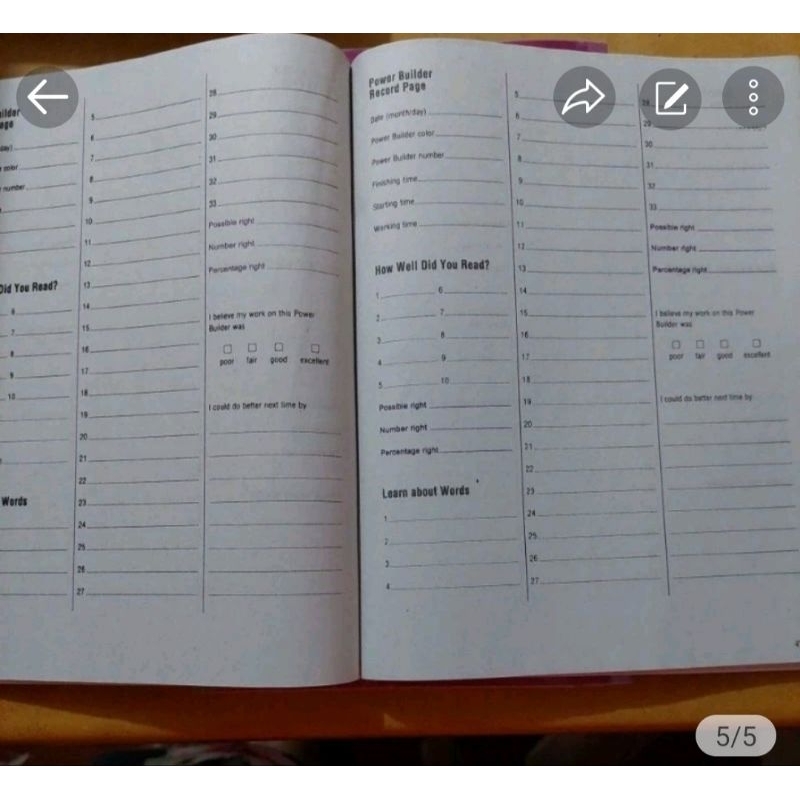 ilder
age
day)
color
number
Did You Read?
6
7
8
9
10
Words
5
6
7
8
9
10
11
12
13
14
15
16
17
18
19
20
21
22
23
24
25
26
27
28
29
30
31
32
33
Possible right
Number right
Percentage right
I believe my work on this Power
Builder was
poor fair good excellent
I could do better next time by
Power Builder
Record Page
Date (month/day)
Power Builder color
Power Builder number
Finishing time
Starting time
Working time
How Well Did You Read?
1 6
2 7
3 8
4 9
5 10
Possible right
Number right
Percentage right
Learn about Words
1
2
3
4
5
6
7
8
9
10
11
12
13
14
15
16
17
18
19
20
21
22
23
24
25
26
27
28
29
30
31
32
33
Possible right
Number right
Percentage right
I believe my work on this Power
Builder was
poor fair good excellent
I could do better next time by
5/5